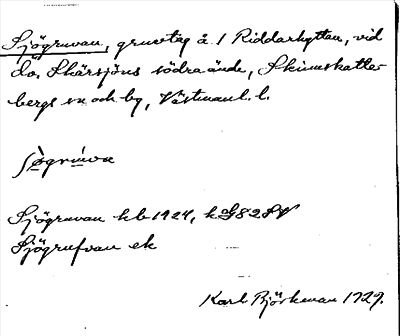 Sjögruvan, gruvetag å 1 Riddarhyttan, vid
L:a Skärsjöns södra ände, Skinnskatte-
bergs sn och by, Västmanl. l.
ʃø̀grùva
Sjögruvan hb 1924, kG 82 SV
Sjögrufvan ek
Karl Björkman 1929.